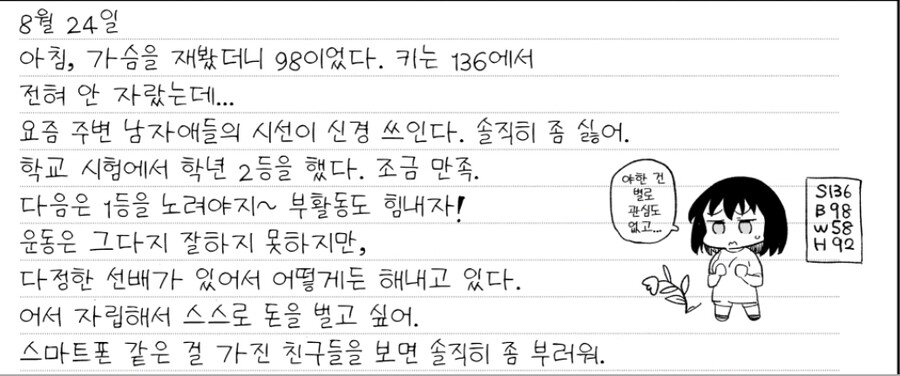 8월 24일
아침, 가슴을 재봤더니 98이었다. 키는 136에서
전혀 안 자랐는데...
요즘 주변 남자애들의 시선이 신경 쓰인다. 솔직히 좀 싫어.
학교 시험에서 학년 2등을 했다. 조금 만족.
다음은 1등을 노려야지~ 부활동도 힘내자!
운동은 그다지 잘하지 못하지만,
다정한 선배가 있어서 어떻게든 해내고 있다.
어서 자립해서 스스로 돈을 벌고 싶어.
스마트폰 같은 걸 가진 친구들을 보면 솔직히 좀 부러워.
야한 건
별로
관심도
없고...
S136
B98
W58
H92